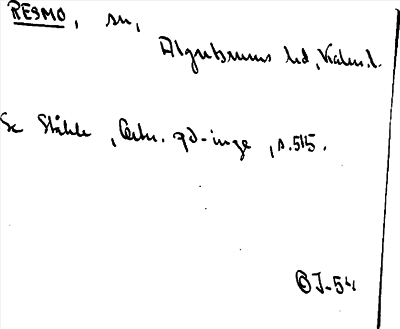 RESMO, sn,
Algutsrums hd, Kalm. l.
Se Ståhle, Ortn. på -inge, s. 515.
J-54